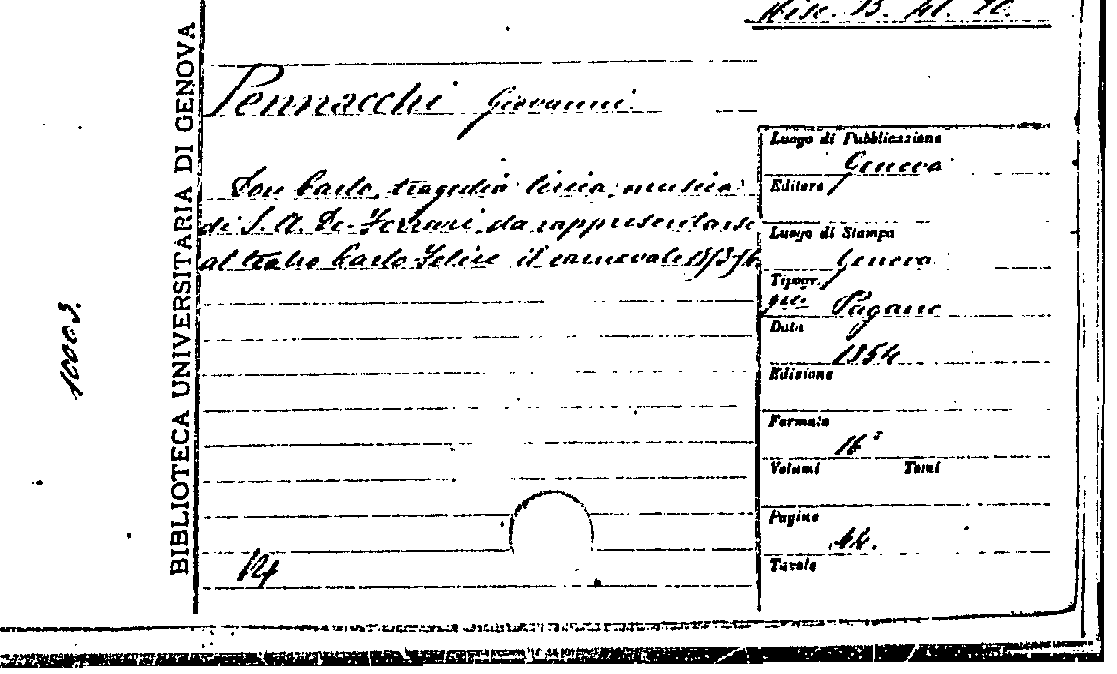 Misc. B.
BIBLIOTECA UNIVERSITARIA DI GENOVA
10003.
Pennacchi Giovanni
Don Carlo, tragedia lirica, musica
di S. A. De-Ferrari, da rappresentarsi
al teatro Carlo Felice il carnevale 1853/54
Luogo di Pubblicazione
Genova
Editore
Luogo di Stampa
Genova
Tipogr.
Pagano
Data
1854
Edizione
Formato
16°
Volumi Tomi
Pagine
44.
Tavole